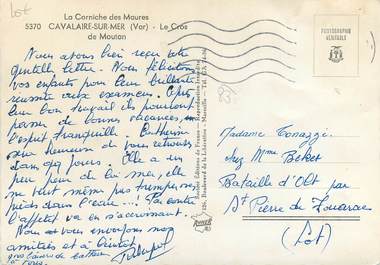 Lot
La Corniche des Maures
5370 CAVALAIRE-SUR-MER (Var) - Le Cros
de Moutan
PHOTOGRAPHIE
VERITABLE
Nous avons bien reçu votre
gentille lettre. Nous félicitons
vos enfants pour leur brillante
réussite aux examens. Après
leur bon travail ils pourront
passer de bonnes vacances,
l'esprit tranquille. Catherine
sera heureuse de vous retrouver
dans dix jours. Elle a un
peu peur de la mer, elle
ne veut même pas tremper ses
pieds dans l'eau...! Par contre
l'appétit va en s'accroissant.
Nous vous envoyons nos
amitiés et à bientôt.
gros baisers de Catherine
Editions de France - Reproduction interdite
126, Boulevard de la Libération - Marseille
Madame
chez Mme
Bataille d'Olt par
St Pierre de
(Lot)